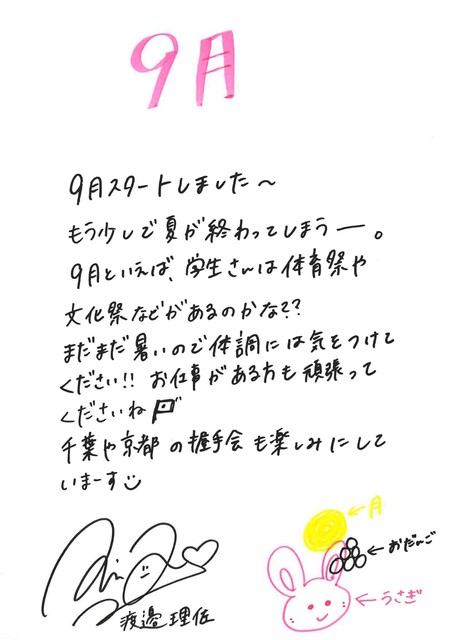 9月
9月スタートしました〜
もう少しで夏が終わってしまうー。
9月といえば、学生さんは体育祭や
文化祭などがあるのかな??
まだまだ暑いので体調には気をつけて
ください!! お仕事がある方も頑張って
くださいね
千葉や京都の握手会も楽しみにして
いまーす
←月
←おだんご
←うさぎ
渡邉理佐